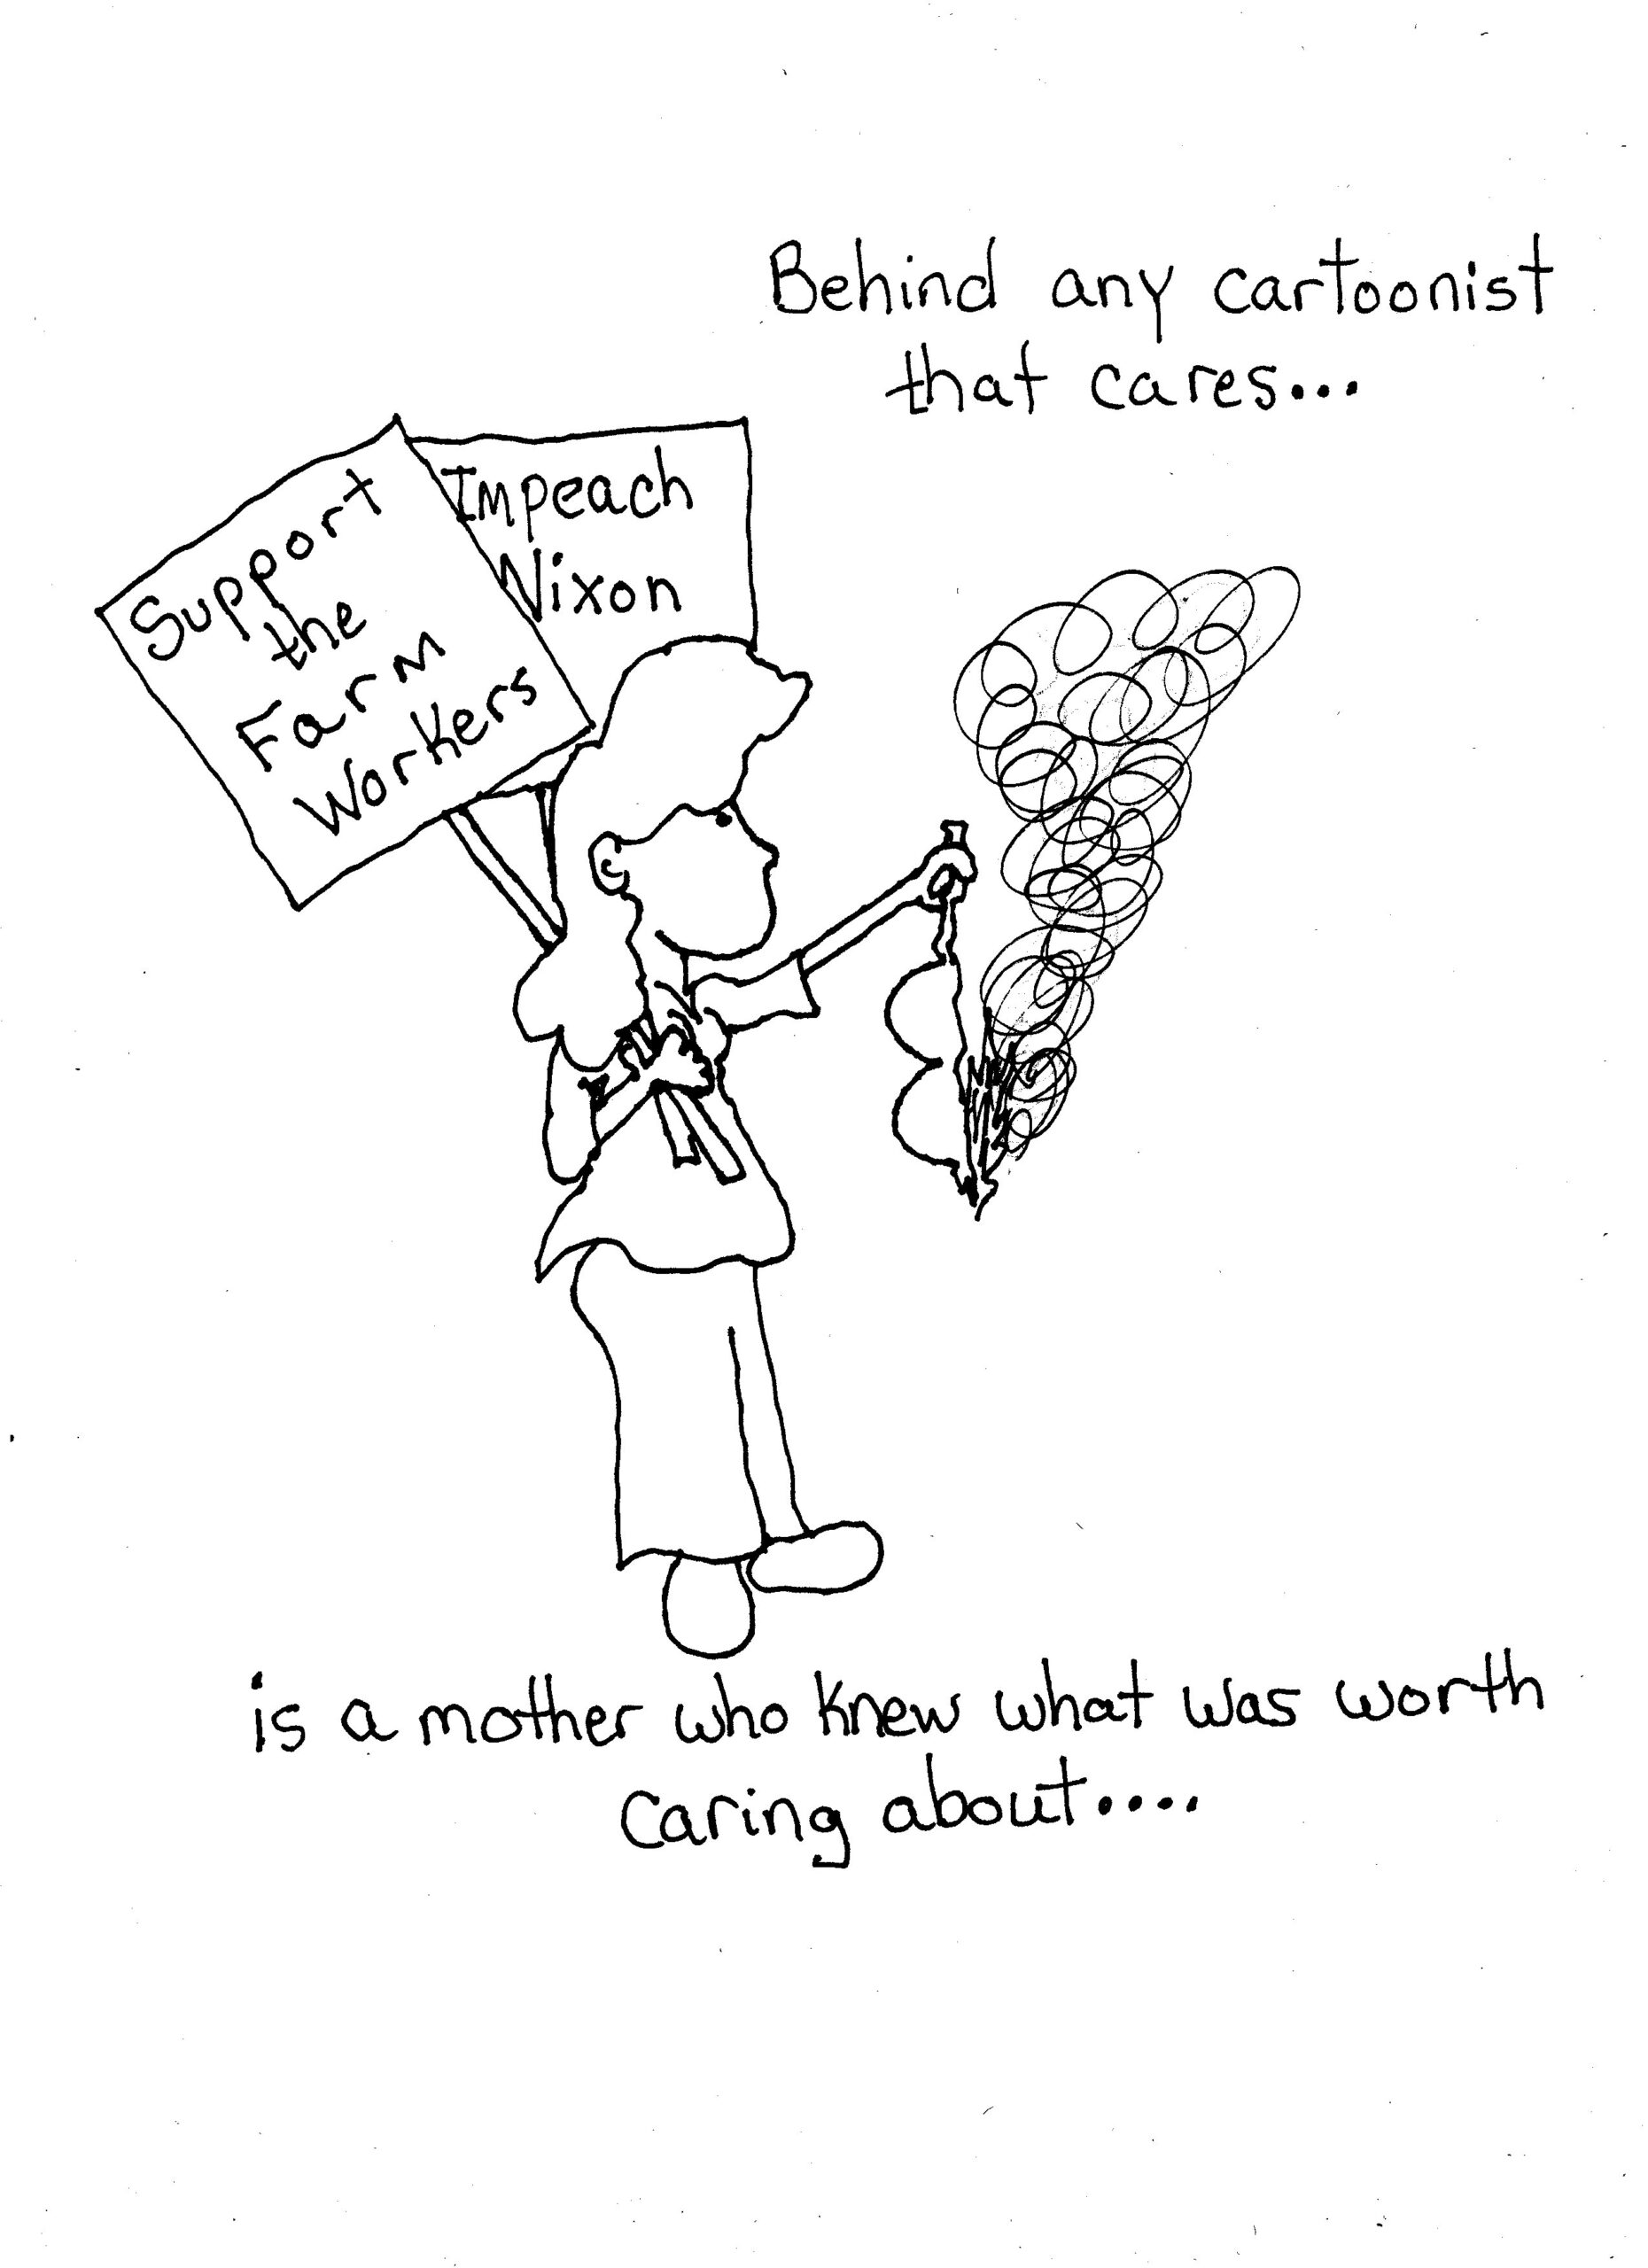 Behind any cartoonist
that cares...
Support
the
Farm
Workers
Impeach
Nixon
is a mother who knew what was worth
caring about....